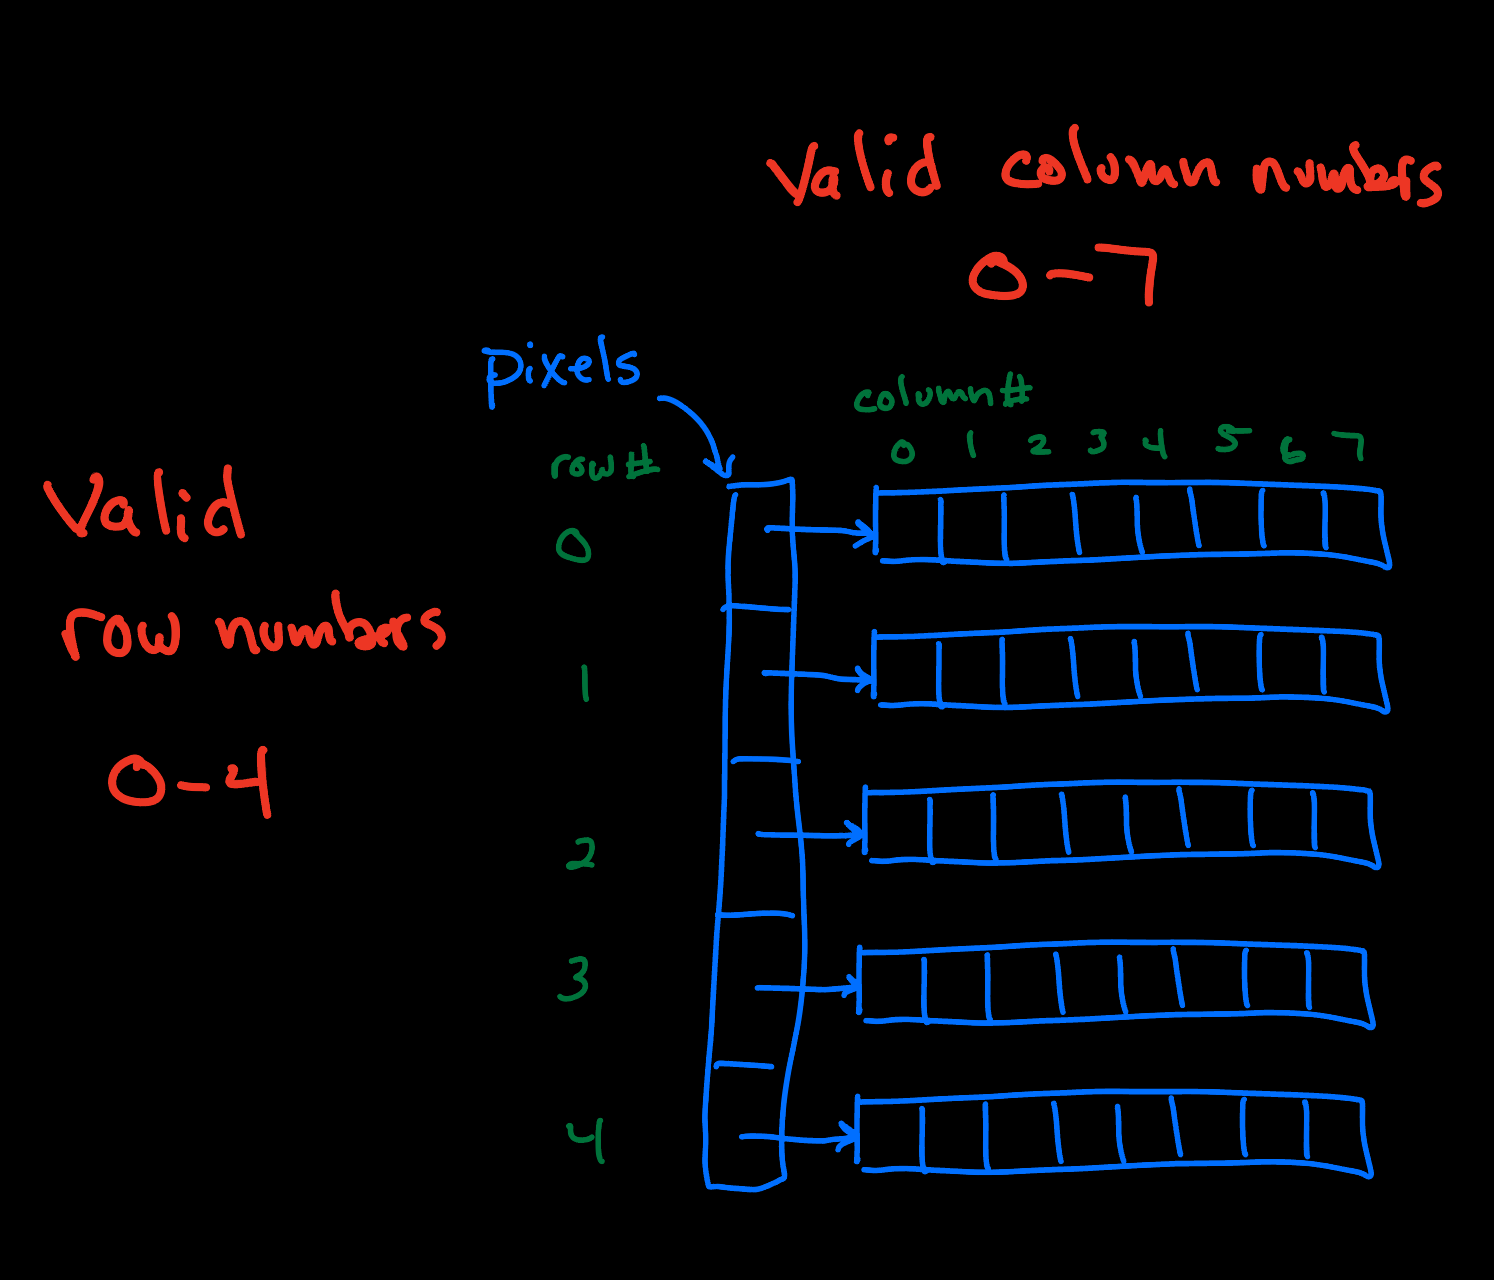 Valid column numbers
0-7
pixels
column#
0 1 2 3 4 5 6 7
row#
Valid
row numbers
0-4
0
1
2
3
4